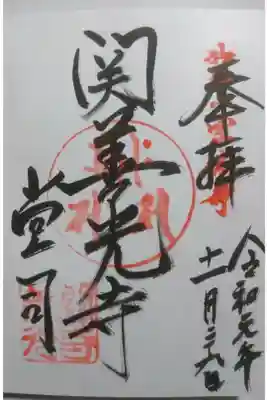 奉拝
令和元年
十一月二九日
関善光寺
堂司